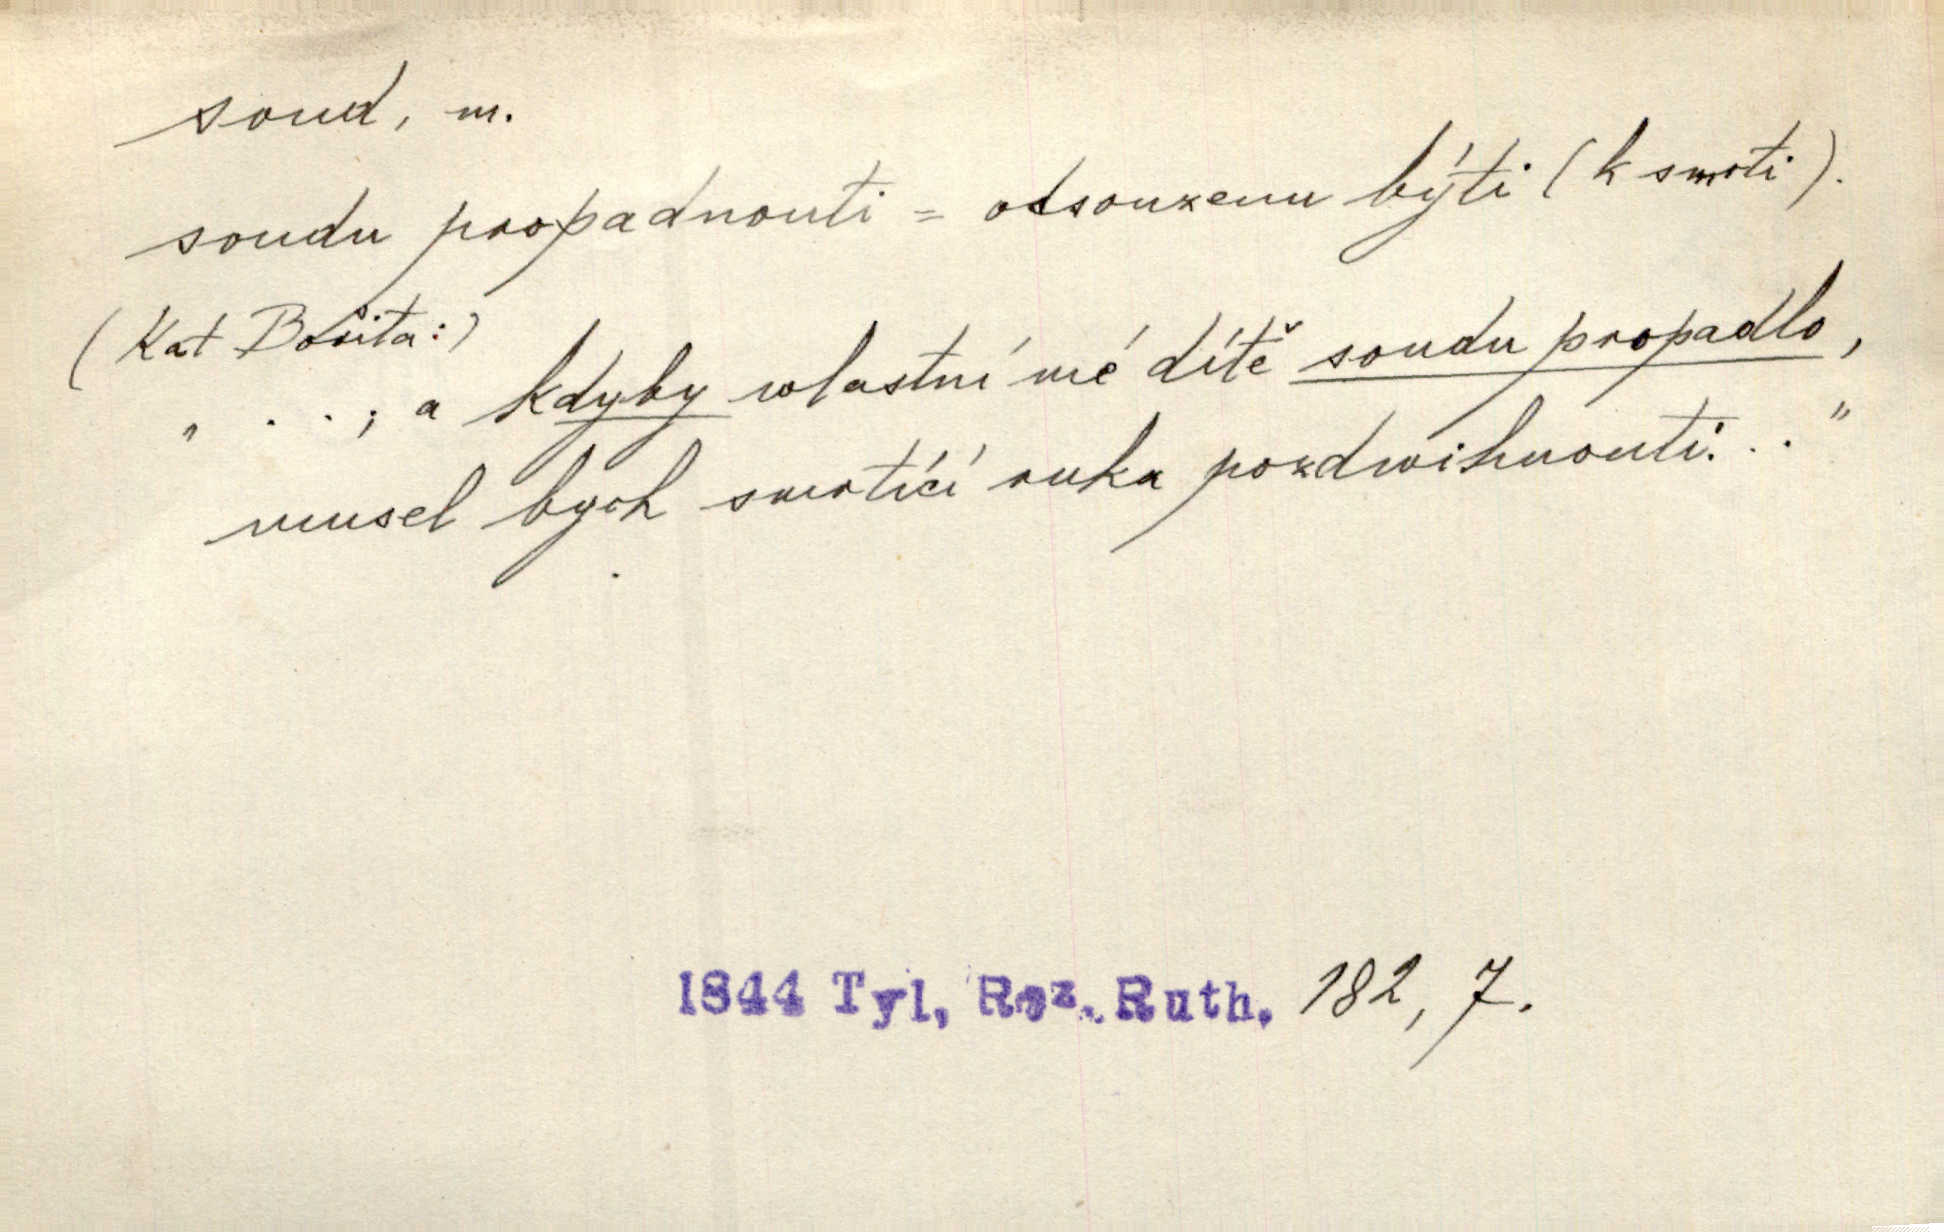 soud, m.
soudu propadnouti = odsouzenu býti (k smrti).
(Kat Bořita:)
„ . . ; a kdyby wlastní mé dítě soudu propadlo,
musel bych smrtící ruku pozdwihnouti. . . "
1844 Tyl, Roz. Ruth. 182, 7.